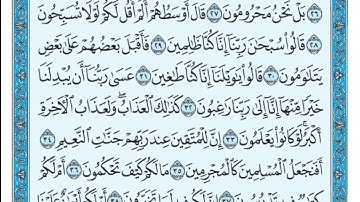 ٢٦ بَلْ نَحْنُ مَحْرُومُونَ ٢٧ قَالَ أَوْسَطُهُمْ أَلَمْ أَقُل لَّكُمْ لَوْلَا تُسَبِّحُونَ
٢٨ قَالُوا۟ سُبْحَـٰنَ رَبِّنَآ إِنَّا كُنَّا ظَـٰلِمِينَ ٢٩ فَأَقْبَلَ بَعْضُهُمْ عَلَىٰ بَعْضٍ
يَتَلَـٰوَمُونَ ٣٠ قَالُوا۟ يَـٰوَيْلَنَآ إِنَّا كُنَّا طَـٰغِينَ ٣١ عَسَىٰ رَبُّنَآ أَن يُبْدِلَنَا
خَيْرًا مِّنْهَآ إِنَّآ إِلَىٰ رَبِّنَا رَٰغِبُونَ ٣٢ كَذَٰلِكَ ٱلْعَذَابُ ۖ وَلَعَذَابُ ٱلْـَٔاخِرَةِ
أَكْبَرُ ۚ لَوْ كَانُوا۟ يَعْلَمُونَ ٣٣ إِنَّ لِلْمُتَّقِينَ عِندَ رَبِّهِمْ جَنَّـٰتِ ٱلنَّعِيمِ ٣٤
أَفَنَجْعَلُ ٱلْمُسْلِمِينَ كَٱلْمُجْرِمِينَ ٣٥ مَا لَكُمْ كَيْفَ تَحْكُمُونَ ٣٦ أَمْ لَكُمْ